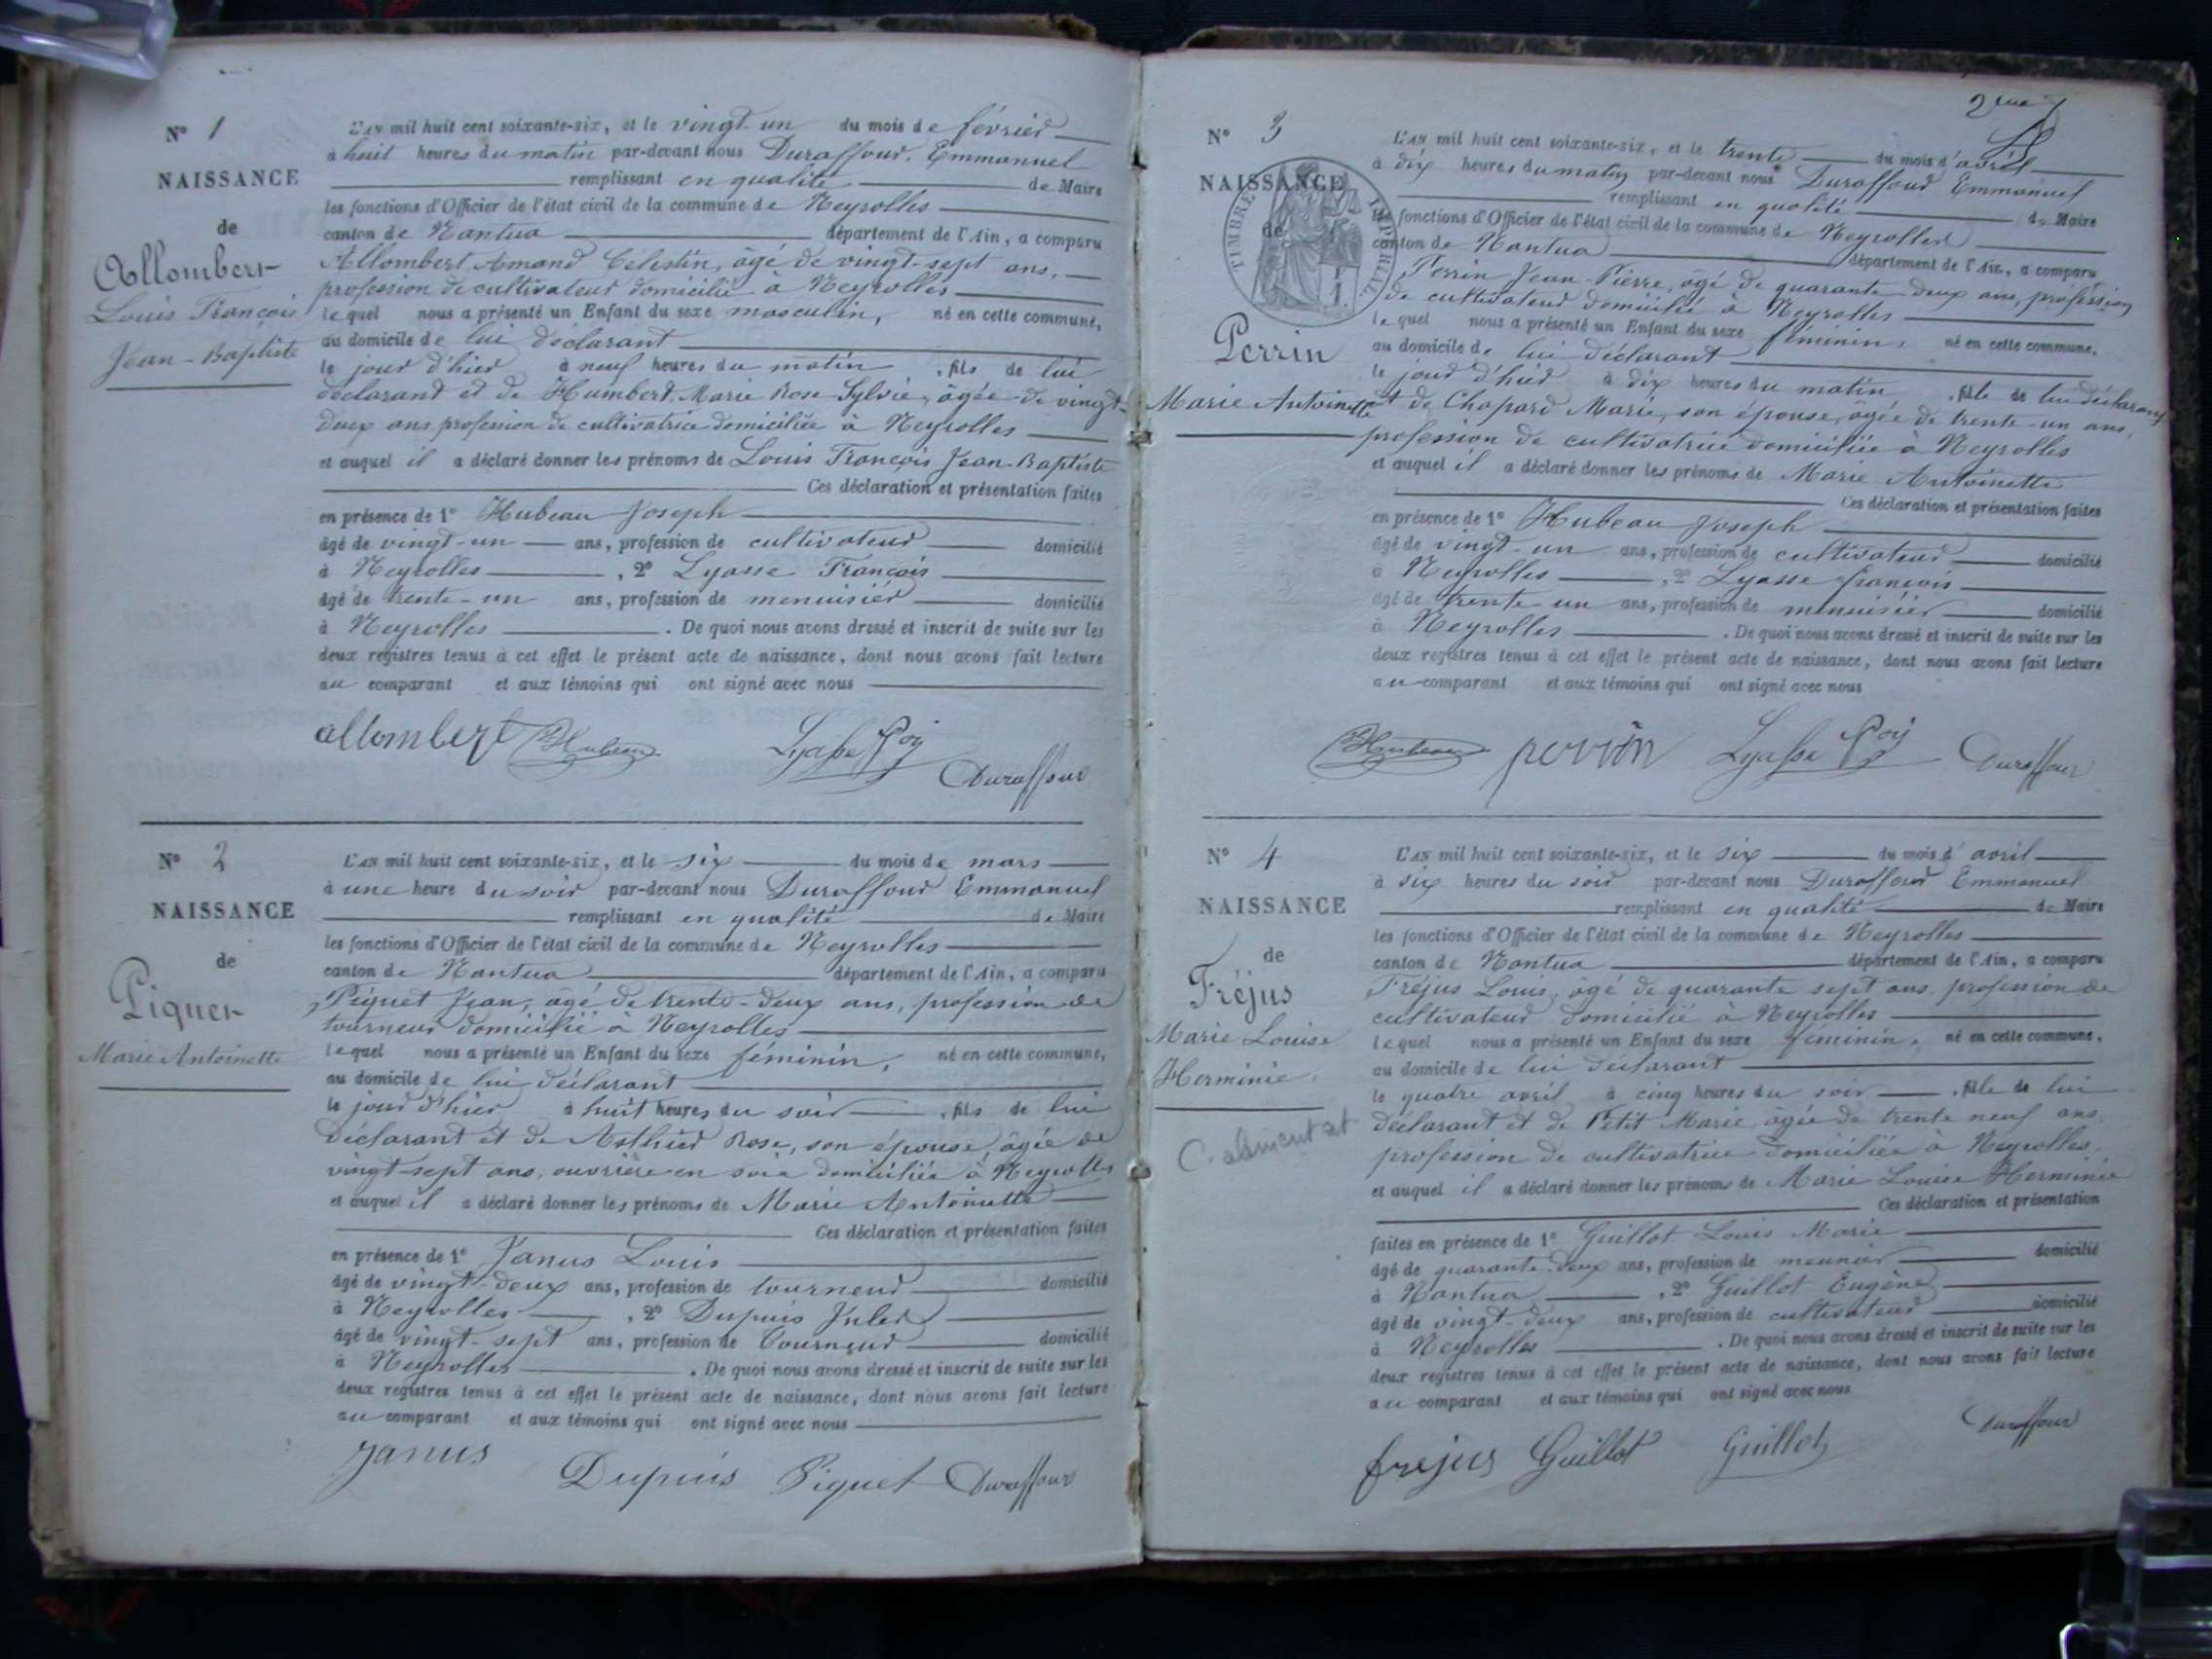 N° 1
NAISSANCE
de
Allombert
Louis François
Jean-Baptiste
L'AN mil huit cent soixante-six, et le vingt-un du mois de février
à huit heures du matin par-devant nous Duraffour Emmanuel
remplissant en qualité de Maire
les fonctions d'Officier de l'état civil de la commune de Neyrolles
canton de Nantua département de l'Ain, a comparu
Allombert Amand Célestin, âgé de vingt-sept ans,
profession de cultivateur domicilié à Neyrolles
lequel nous a présenté un Enfant du sexe masculin, né en cette commune,
au domicile de lui déclarant
le jour d'hier à neuf heures du matin, fils de lui
déclarant et de Humbert Marie Rose Sylvie, âgée de vingt-
deux ans, profession de cultivatrice domiciliée à Neyrolles
et auquel il a déclaré donner les prénoms de Louis François Jean-Baptiste
Ces déclaration et présentation faites
en présence de 1° Hubeau Joseph
âgé de vingt-un ans, profession de cultivateur domicilié
à Neyrolles, 2° Lyasse François
âgé de trente-un ans, profession de menuisier domicilié
à Neyrolles. De quoi nous avons dressé et inscrit de suite sur les
deux registres tenus à cet effet le présent acte de naissance, dont nous avons fait lecture
au comparant et aux témoins qui ont signé avec nous
allombert Hubeau Lyasse Fois Duraffour
N° 2
NAISSANCE
de
Piquet
Marie Antoinette
L'AN mil huit cent soixante-six, et le six du mois de mars
à une heure du soir par-devant nous Duraffour Emmanuel
remplissant en qualité de Maire
les fonctions d'Officier de l'état civil de la commune de Neyrolles
canton de Nantua département de l'Ain, a comparu
Piquet Jean, âgé de trente-deux ans, profession de
tourneur domicilié à Neyrolles
lequel nous a présenté un Enfant du sexe féminin, né en cette commune,
au domicile de lui déclarant
le jour d'hier à huit heures du soir, fils de lui
déclarant et de Rose, son épouse, âgée de
vingt-sept ans, ouvrière en soie domiciliée à Neyrolles
et auquel il a déclaré donner les prénoms de Marie Antoinette
Ces déclaration et présentation faites
en présence de 1° Janus Louis
âgé de vingt-deux ans, profession de tourneur domicilié
à Neyrolles, 2° Dupuis Jules
âgé de vingt-sept ans, profession de Tourneur domicilié
à Neyrolles. De quoi nous avons dressé et inscrit de suite sur les
deux registres tenus à cet effet le présent acte de naissance, dont nous avons fait lecture
au comparant et aux témoins qui ont signé avec nous
Janus Dupuis Piquet Duraffour
2
N° 3
NAISSANCE
de
TIMBRE IMPÉRIAL
Perrin
Marie Antoinette
L'AN mil huit cent soixante-six, et le trente du mois d'avril
à dix heures du matin par-devant nous Duraffour Emmanuel
remplissant en qualité de Maire
les fonctions d'Officier de l'état civil de la commune de Neyrolles
canton de Nantua département de l'Ain, a comparu
Perrin Jean-Pierre, âgé de quarante-deux ans, profession
de cultivateur domicilié à Neyrolles
lequel nous a présenté un Enfant du sexe féminin, né en cette commune,
au domicile de lui déclarant
le jour d'hier à dix heures du matin, fille de lui déclarant
et de Chapard Marie, son épouse, âgée de trente-un ans,
profession de cultivatrice domiciliée à Neyrolles
et auquel il a déclaré donner les prénoms de Marie Antoinette
Ces déclaration et présentation faites
en présence de 1° Hubeau Joseph
âgé de vingt-un ans, profession de cultivateur domicilié
à Neyrolles, 2° Lyasse François
âgé de trente-un ans, profession de menuisier domicilié
à Neyrolles. De quoi nous avons dressé et inscrit de suite sur les
deux registres tenus à cet effet le présent acte de naissance, dont nous avons fait lecture
au comparant et aux témoins qui ont signé avec nous
Hubeau perrin Lyasse Fois Duraffour
N° 4
NAISSANCE
de
Fréjus
Marie Louise
Herminie
L'AN mil huit cent soixante-six, et le six du mois d'avril
à six heures du soir par-devant nous Duraffour Emmanuel
remplissant en qualité de Maire
les fonctions d'Officier de l'état civil de la commune de Neyrolles
canton de Nantua département de l'Ain, a comparu
Fréjus Louis, âgé de quarante sept ans, profession de
cultivateur domicilié à Neyrolles
lequel nous a présenté un Enfant du sexe féminin, né en cette commune,
au domicile de lui déclarant
le quatre avril à cinq heures du soir, fille de lui
déclarant et de Petit Marie âgée de trente neuf ans,
profession de cultivatrice domiciliée à Neyrolles
et auquel il a déclaré donner les prénoms de Marie Louise Herminie
Ces déclaration et présentation
faites en présence de 1° Guillot Louis Marie
âgé de quarante-deux ans, profession de meunier domicilié
à Nantua, 2° Guillot Eugène
âgé de vingt-deux ans, profession de cultivateur domicilié
à Neyrolles. De quoi nous avons dressé et inscrit de suite sur les
deux registres tenus à cet effet le présent acte de naissance, dont nous avons fait lecture
au comparant et aux témoins qui ont signé avec nous
frejus Guillot Guillot Duraffour